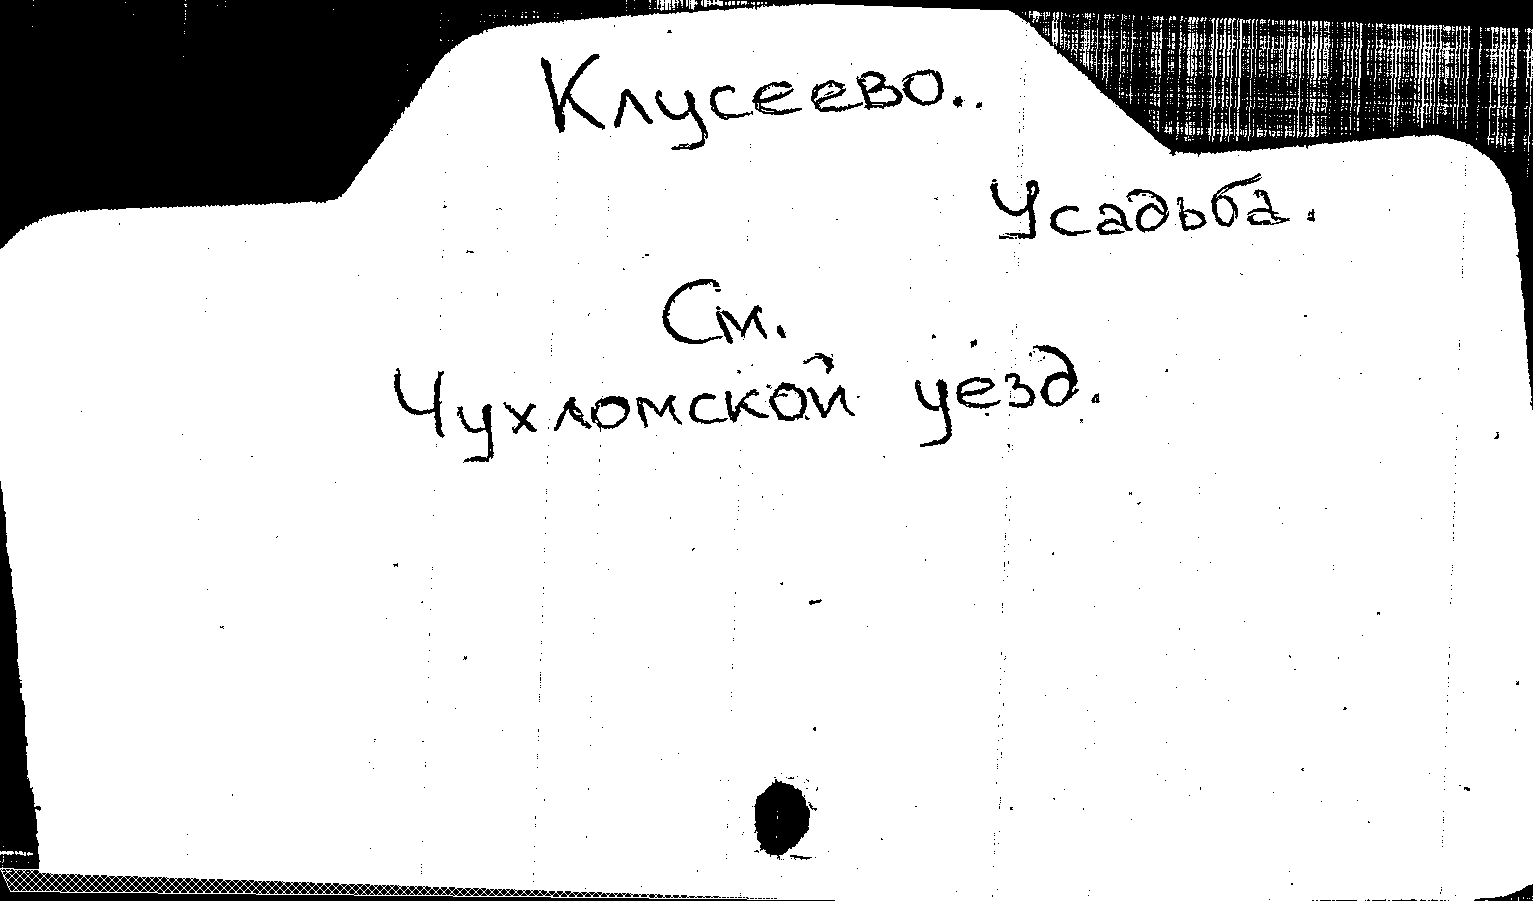 Клусеево..
Усадьба.
См.
Чухломской уезд.